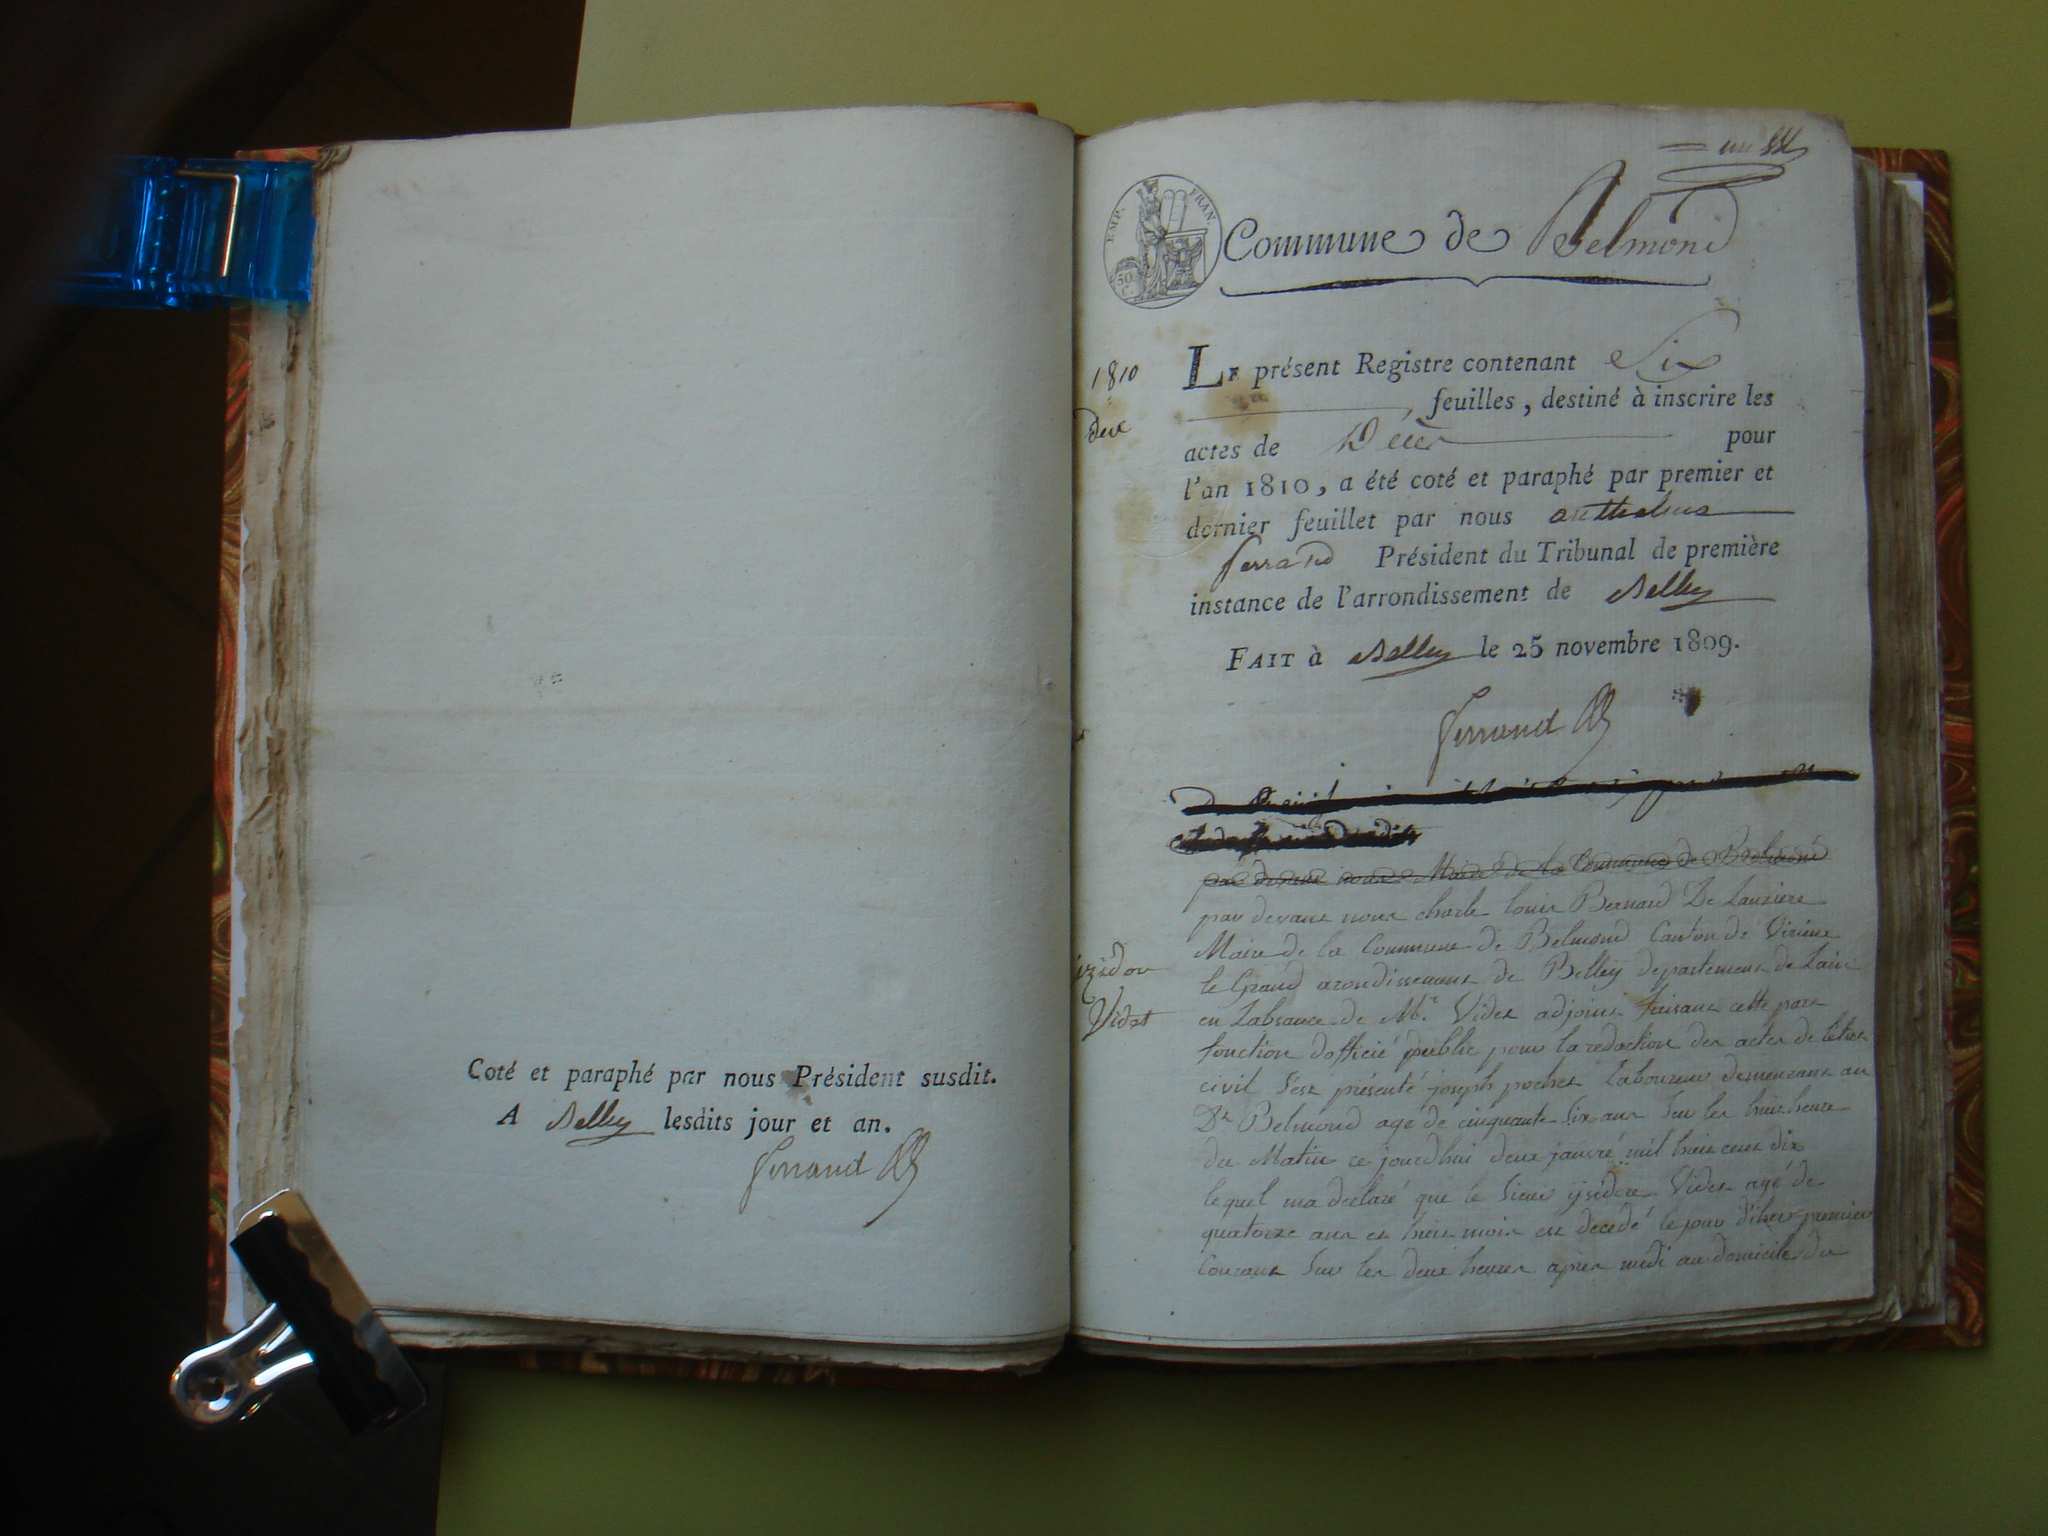 Coté et paraphé par nous Président susdit.
A Belley lesdits jour et an.
Ferrand
EMP. FRAN.
50 C.
Commune de Belmond
1810
Le présent Registre contenant Six
feuilles, destiné à inscrire les
actes de Décès pour
l'an 1810, a été coté et paraphé par premier et
dernier feuillet par nous anthelme
ferrand Président du Tribunal de première
instance de l'arrondissement de Belley
FAIT à Belley le 25 novembre 1809.
Ferrand
par devant nous Maire de la Commune de Belmond
par devant nous charle louis Bernard De Lauziere
Maire de la Commune de Belmond Canton de Virieu
le Grand arondissement de Belley departement de Lain
en Labsance de Mr. Videt adjoint faisant cette part
fonction dofficié public pour la redaction des actes de létat
civil s'est présenté joseph pochet Laboureur demeurant au
Dt Belmond agé de cinquante six ans sur les huit heure
du Matin ce jourdhui deux janvié mil huit cent dix
lequel ma déclaré que le sieur ysidore Videt agé de
quatorze ans et huit mois est décédé le jour d'hier premier
Courant sur les deux heures apres midi au domicile du
izidor
Vidat